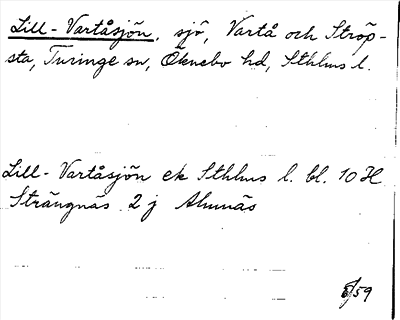 Lill-Vartåsjön, sjö, Vartå och Ströp-
sta, Turinge sn, Öknebo hd, Sthlms l.
Lill-Vartåsjön ek Sthlms l. bl. 10 H
Strängnäs 2 j Alunäs
/59